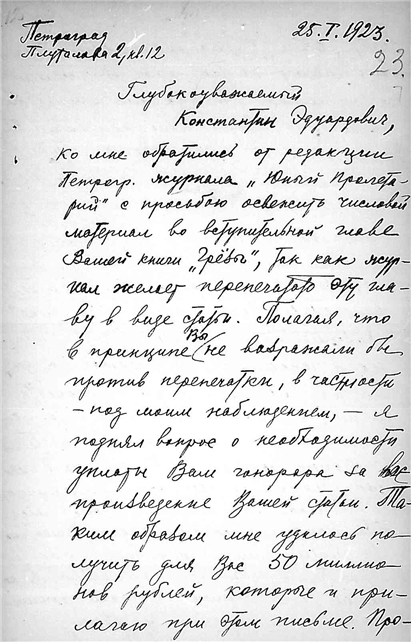 Петроград
Плуталова 2, кв. 12
25.I.1923.
23.
Глубокоуважаемый
Константин Эдуардович,
ко мне обратились от редакции
Петрогр. журнала „Юный Пролета-
рий" с просьбою освежить числовой
материал во вступительной главе
Вашей книги „Грёзы", так как жур-
нал желает перепечатать эту гла-
ву в виде статьи. Полагая, что
в принципе Вы не возражали бы
против перепечатки, в частности
– под моим наблюдением, – я
поднял вопрос о необходимости
уплаты Вам гонорара за
произведение Вашей статьи. Та-
ким образом мне удалось по-
лучить для Вас 50 миллио-
нов рублей, которые и при-
лагаю при этом письме. Про-